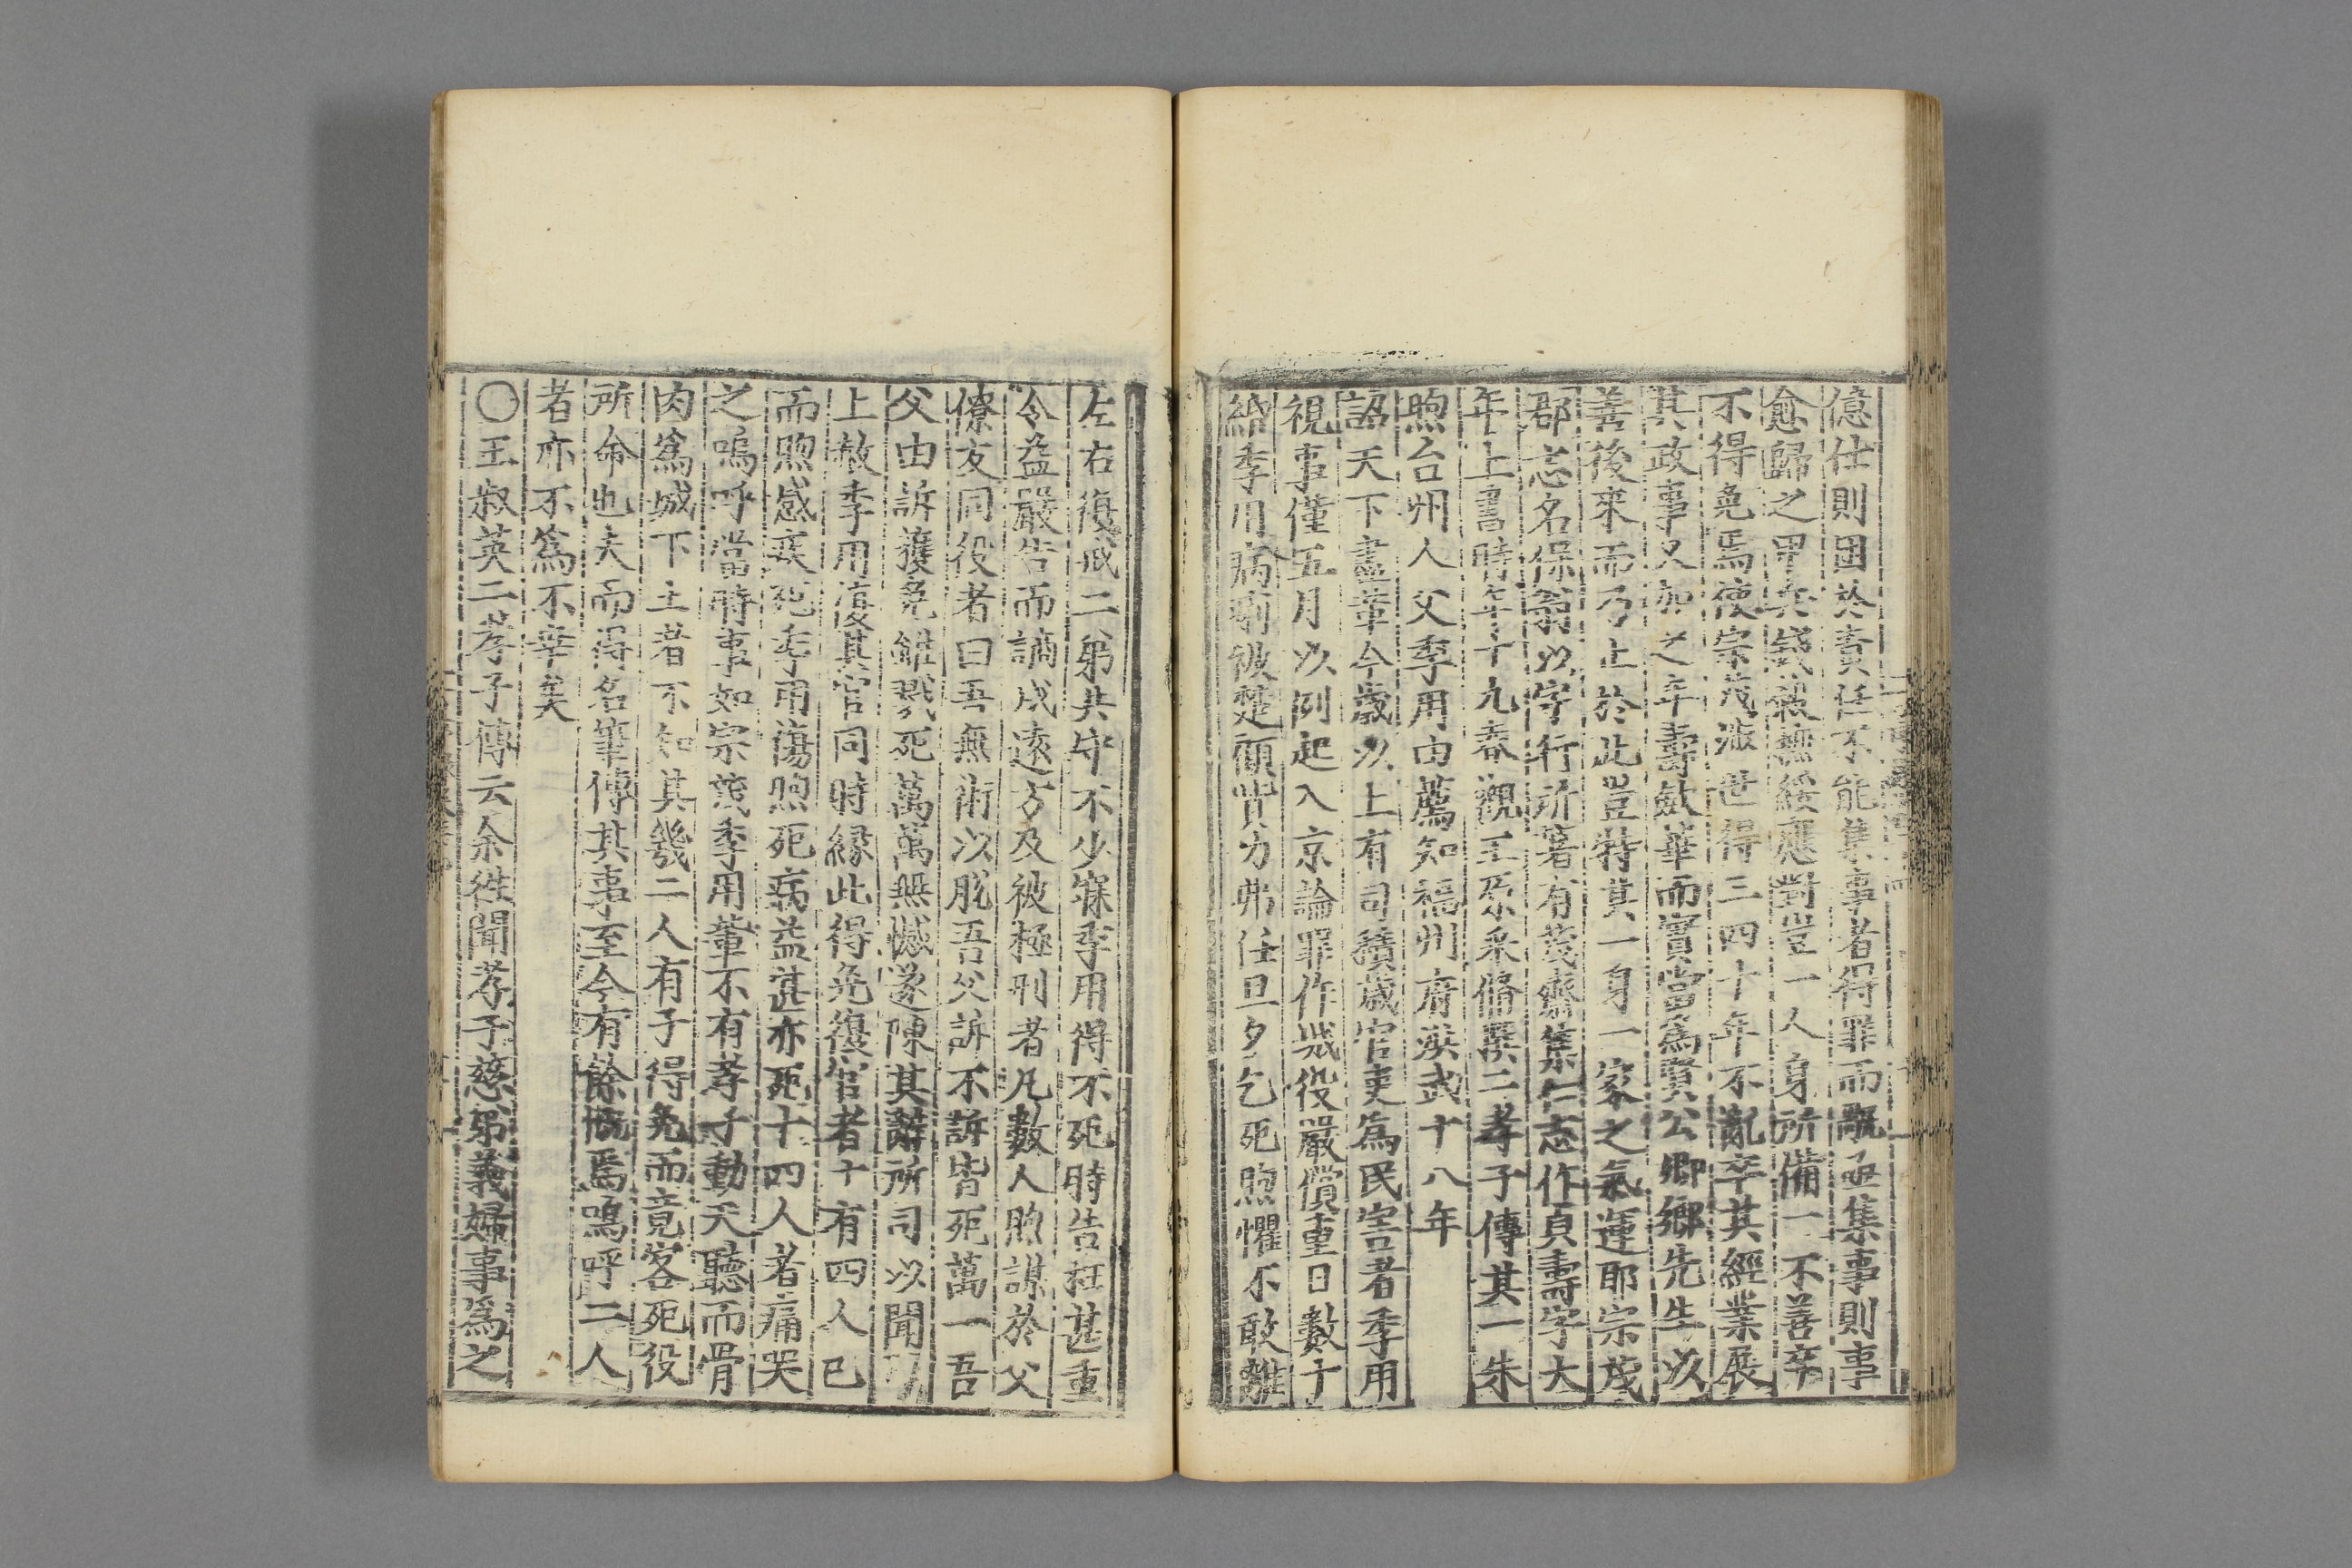 億仕則固於責任不能集事者得罪而歐亟集事則事
愈歸之甲兵錢穀撫綏應對豈一人身所備一不善卒
不得免焉使宗茂涉世得三四十年不亂卒其經業展
其政事又加之年壽斂華而實當爲賢公卿鄉先生以
善後來而乃止於此豈特其一身一家之氣運耶宗茂
郡志名保翁以字行所著有茂齋集仁志作貞壽字大
年上書時年十九春觀王原采脩撰二孝子傳其一朱
煦台州人父季用由薦知福州府洪武十八年
詔天下盡革今歲以上有司積歲官吏爲民害者季用
視事僅五月以例起入京論罪作城役嚴償重日數十
緡季用病痢被楚顧貲力弗任旦夕乞死煦懼不敢離
左右復戒二弟共守不少寐季用得不死時告枉甚重
令益嚴告而謫戍遠方及被極刑者凡數人煦謀於父
僚友同役者曰吾無術以脫吾父訴不訴皆死萬一吾
父由訴獲免雖戮死萬萬無憾遂陳其辭所司以聞
上赦季用復其官同時緣此得免復官者十有四人已
而煦感疾死季用傷煦死病益甚亦死十四人者痛哭
之嗚呼當時事如宗茂季用輩不有孝子動天聽而骨
肉爲城下土者不知其幾二人有子得免而竟客死役
所命也夫而得名筆傳其事至今有餘慨焉嗚呼二人
者亦不爲不幸矣
○王叔英二孝子傳云余往聞孝子慈弟義婦事爲之